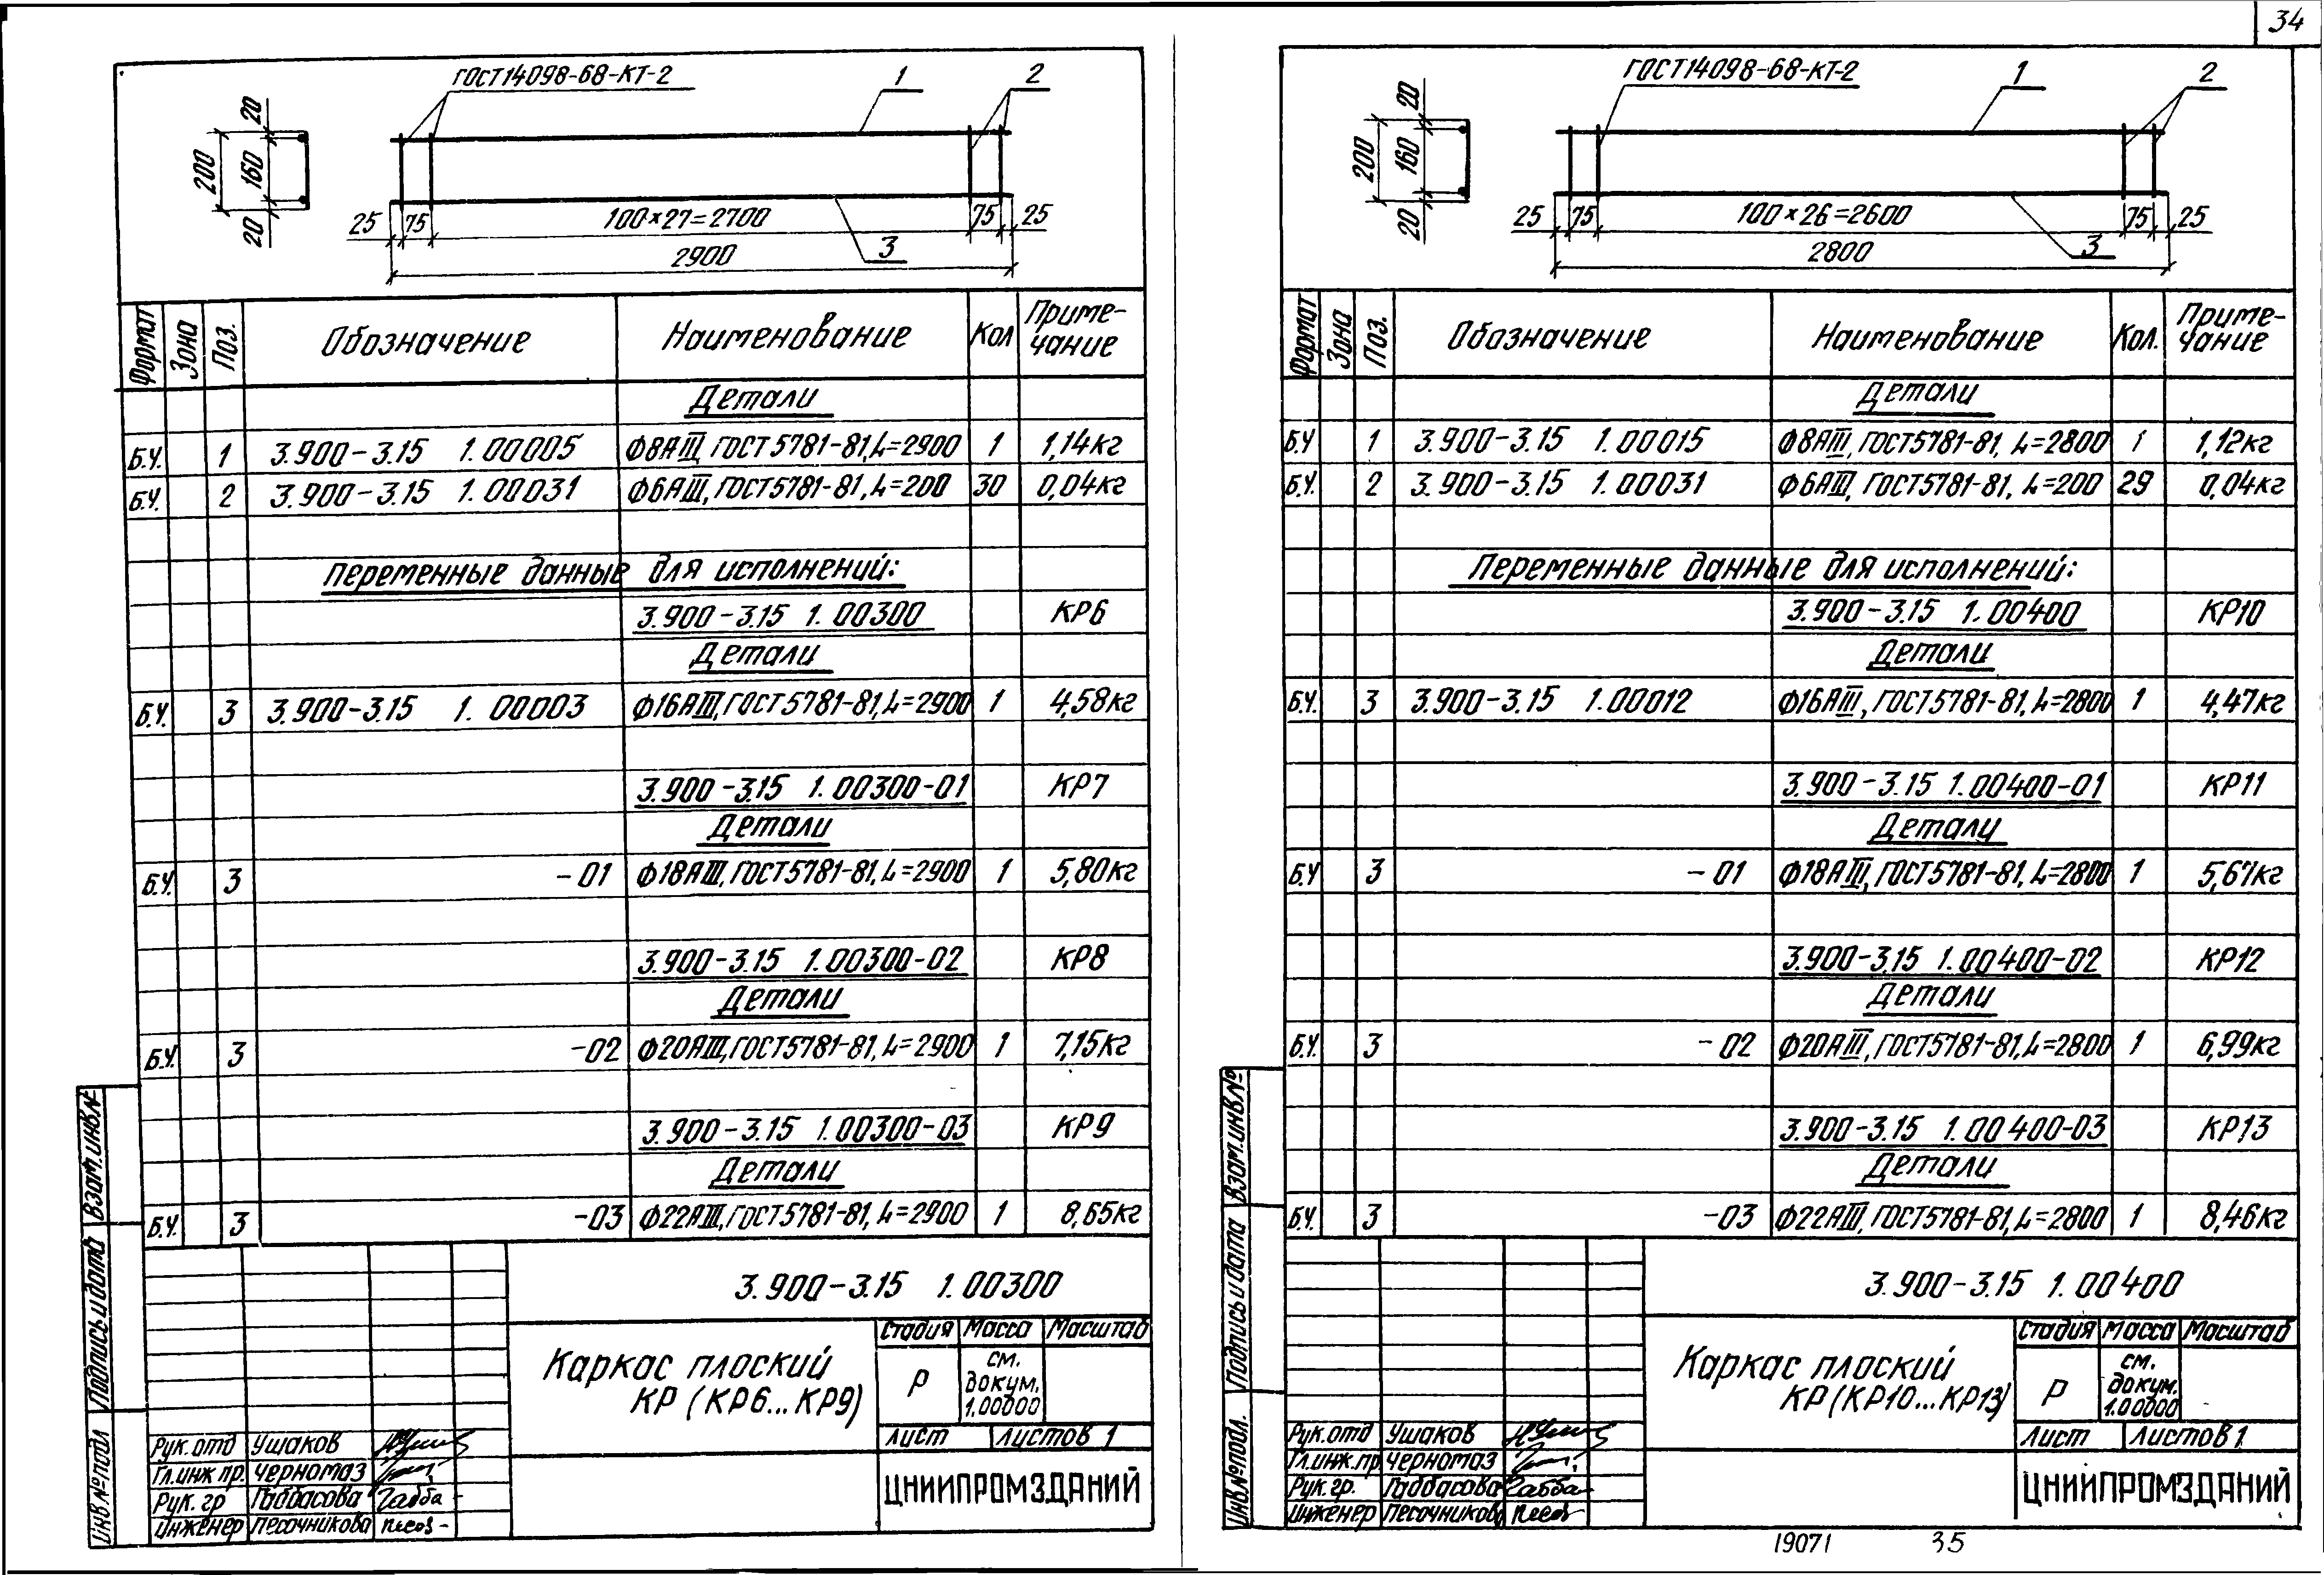 34
ГОСТ14098-68-КТ-2
1
2
20
160
200
20
25
75
100×27=2700
75
25
2900
3
Формат
Зона
Поз.
Обозначение
Наименование
Кол
Приме-
чание
Детали
Б.Ч. 1 3.900-3.15 1.00005 Ф8АIII, ГОСТ5781-81, L=2900 1 1,14кг
Б.Ч. 2 3.900-3.15 1.00031 Ф6АIII, ГОСТ5781-81, L=200 30 0,04кг
Переменные данные для исполнений:
3.900-3.15 1.00300 КР6
Детали
Б.Ч. 3 3.900-3.15 1.00003 Ф16АIII, ГОСТ5781-81, L=2900 1 4,58кг
3.900-3.15 1.00300-01 КР7
Детали
Б.Ч. 3 -01 Ф18АIII, ГОСТ5781-81, L=2900 1 5,80кг
3.900-3.15 1.00300-02 КР8
Детали
Б.Ч. 3 -02 Ф20АIII, ГОСТ5781-81, L=2900 1 7,15кг
3.900-3.15 1.00300-03 КР9
Детали
Б.Ч. 3 -03 Ф22АIII, ГОСТ5781-81, L=2900 1 8,65кг
Взам.инв.№
Подпись и дата
Инв.№подл
3.900-3.15 1.00300
Каркас плоский
КР (КР6...КР9)
Стадия Масса Масштаб
Р
см.
докум.
1.00000
Лист Листов 1
ЦНИИПРОМЗДАНИЙ
Рук.отд Ушаков
Гл.инж пр. Черномаз
Рук.гр Габбасова Габба-
Инженер Песочникова Песоч-
ГОСТ14098-68-КТ-2
1
2
20
160
200
20
25
75
100×26=2600
75
25
2800
3
Формат
Зона
Поз.
Обозначение
Наименование
Кол.
Приме-
чание
Детали
Б.Ч 1 3.900-3.15 1.00015 Ф8АIII, ГОСТ5781-81, L=2800 1 1,12кг
Б.Ч. 2 3.900-3.15 1.00031 Ф6АIII, ГОСТ5781-81, L=200 29 0,04кг
Переменные данные для исполнений:
3.900-3.15 1.00400 КР10
Детали
Б.Ч. 3 3.900-3.15 1.00012 Ф16АIII, ГОСТ5781-81, L=2800 1 4,47кг
3.900-3.15 1.00400-01 КР11
Детали
Б.Ч 3 -01 Ф18АIII, ГОСТ5781-81, L=2800 1 5,67кг
3.900-3.15 1.00400-02 КР12
Детали
Б.Ч. 3 -02 Ф20АIII, ГОСТ5781-81, L=2800 1 6,99кг
3.900-3.15 1.00400-03 КР13
Детали
Б.Ч. 3 -03 Ф22АIII, ГОСТ5781-81, L=2800 1 8,46кг
Взам.инв.№
Подпись и дата
Инв.№подл.
3.900-3.15 1.00400
Каркас плоский
КР (КР10...КР13)
Стадия Масса Масштаб
Р
см.
докум.
1.00000
Лист Листов 1
ЦНИИПРОМЗДАНИЙ
Рук.отд Ушаков
Гл.инж.пр Черномаз
Рук.гр. Габбасова Габба-
Инженер Песочникова Песоч-
19071 35